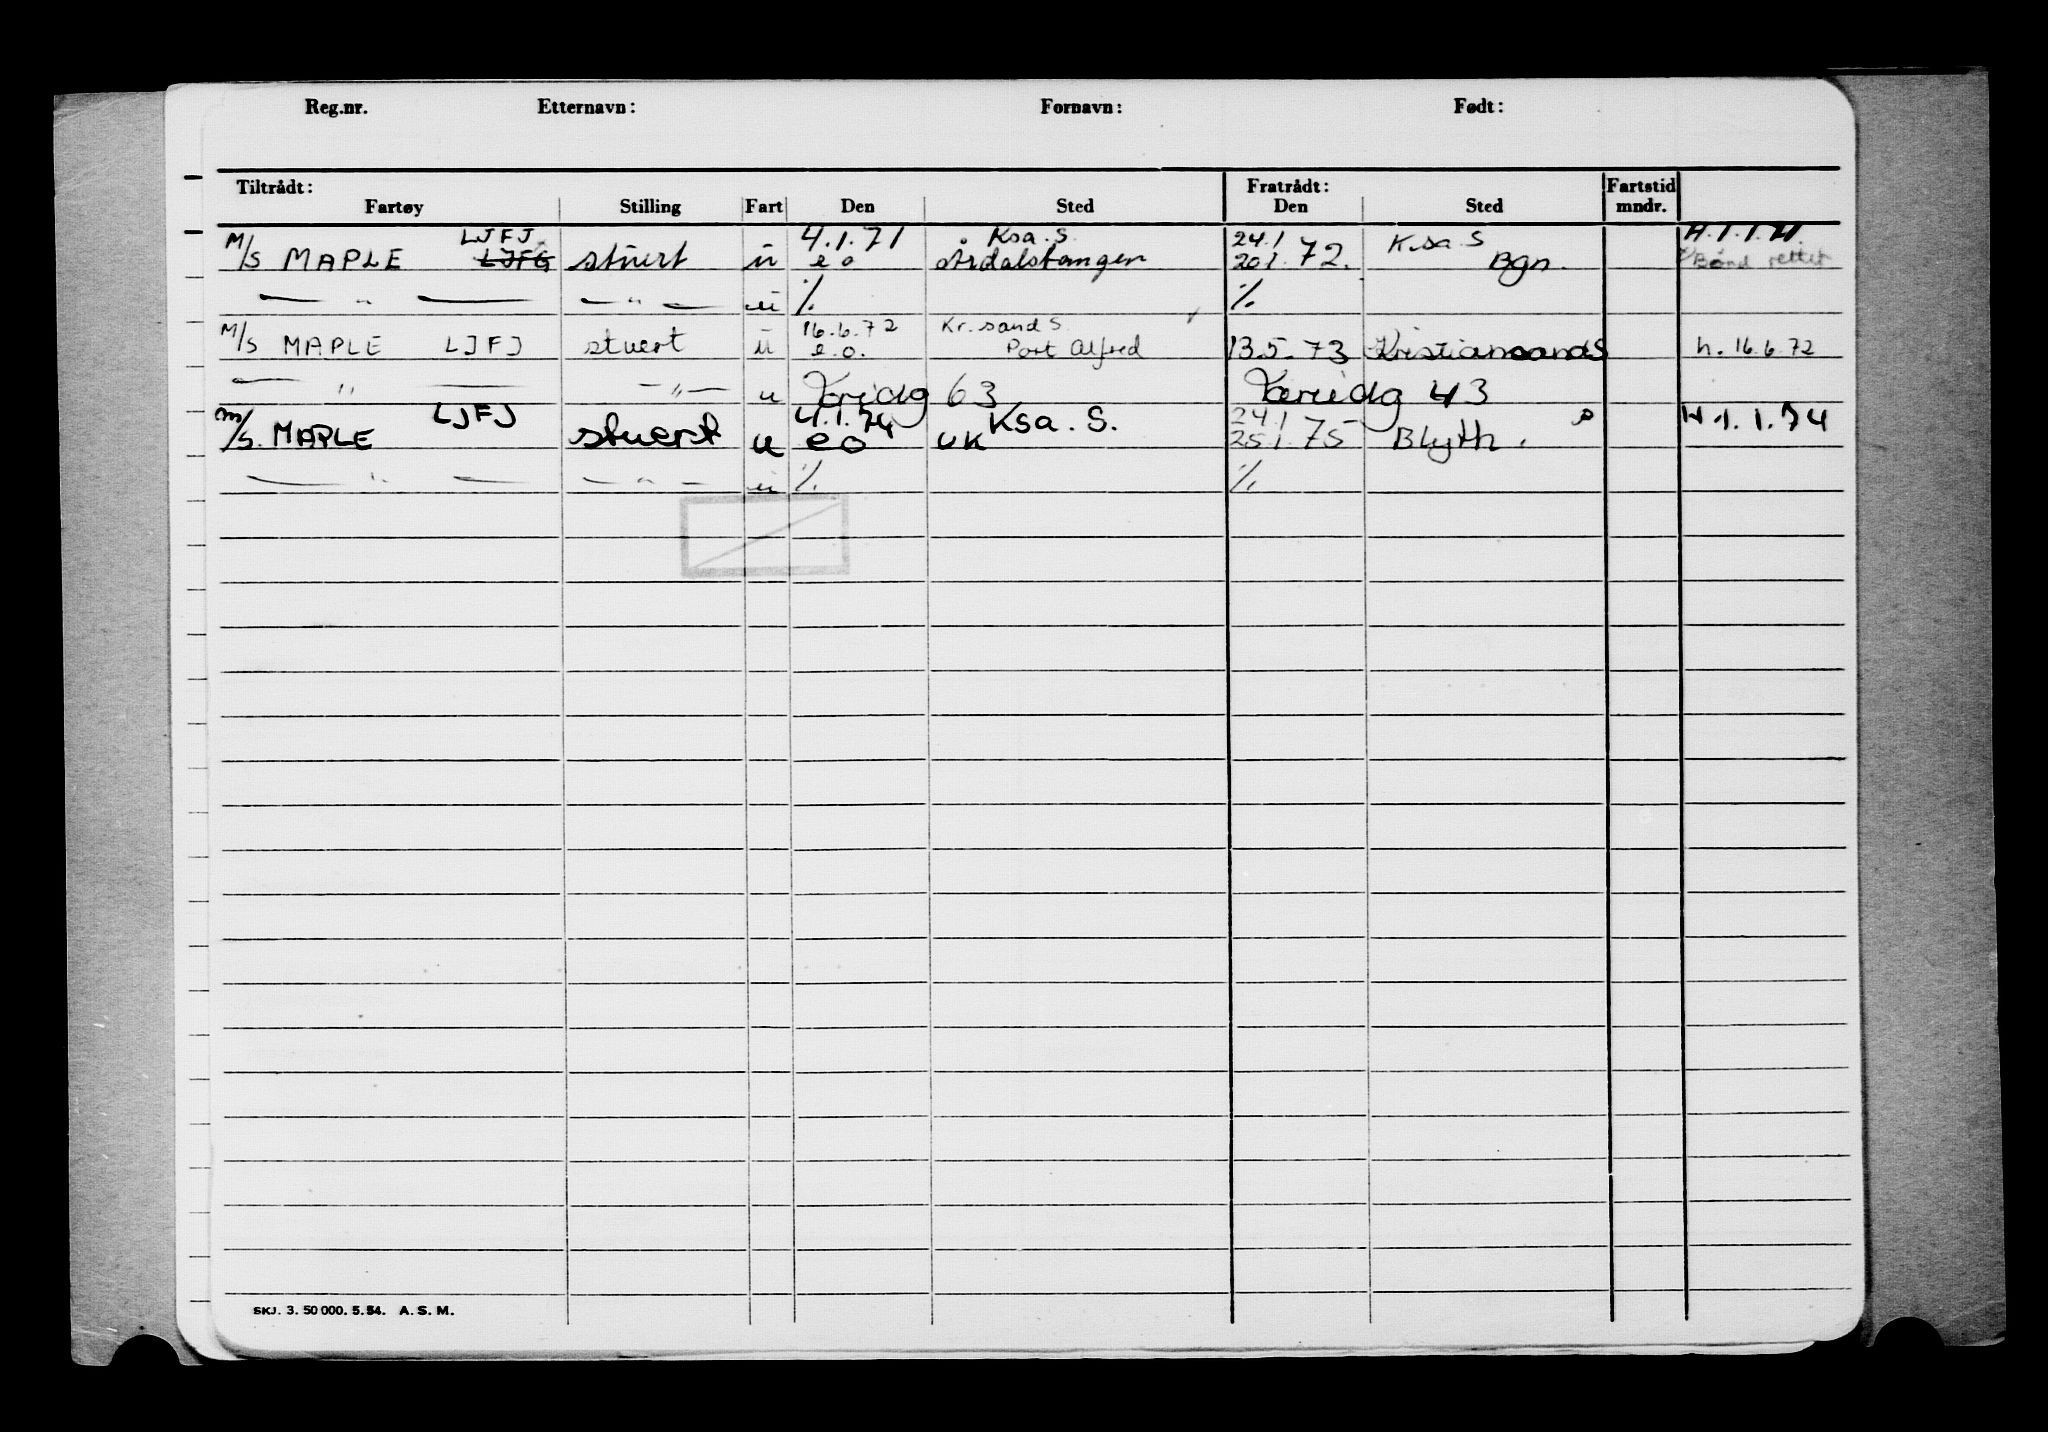 Reg.nr. Etternavn: Fornavn: Født:
Tiltrådt: Fratrådt: Fartstid
Fartøy Stilling Fart Den Sted Den Sted mndr.
LJFJ 4.1.71 Ksa. S. 24.1 K.sa. S H.1.1.71
M/S MAPLE LJFG stuert u e o Årdalstangen 20.1.72. Bgn. rettet
— " — — " — u ./. ./.
16.6.72 Kr.sand S.
M/S MAPLE LJFJ stuert u e.o. Port Alfred 13.5.73 Kristiansand S h. 16.6.72
— " — — " — u 63 43
LJFJ 4.1.74 Ksa. S. 24.1
M/S. MAPLE stuert u e o UK 25.1.75 Blyth. H 1.1.74
— " — — " — u ./. ./.
SKJ. 3. 50 000. 5. 54. A. S. M.